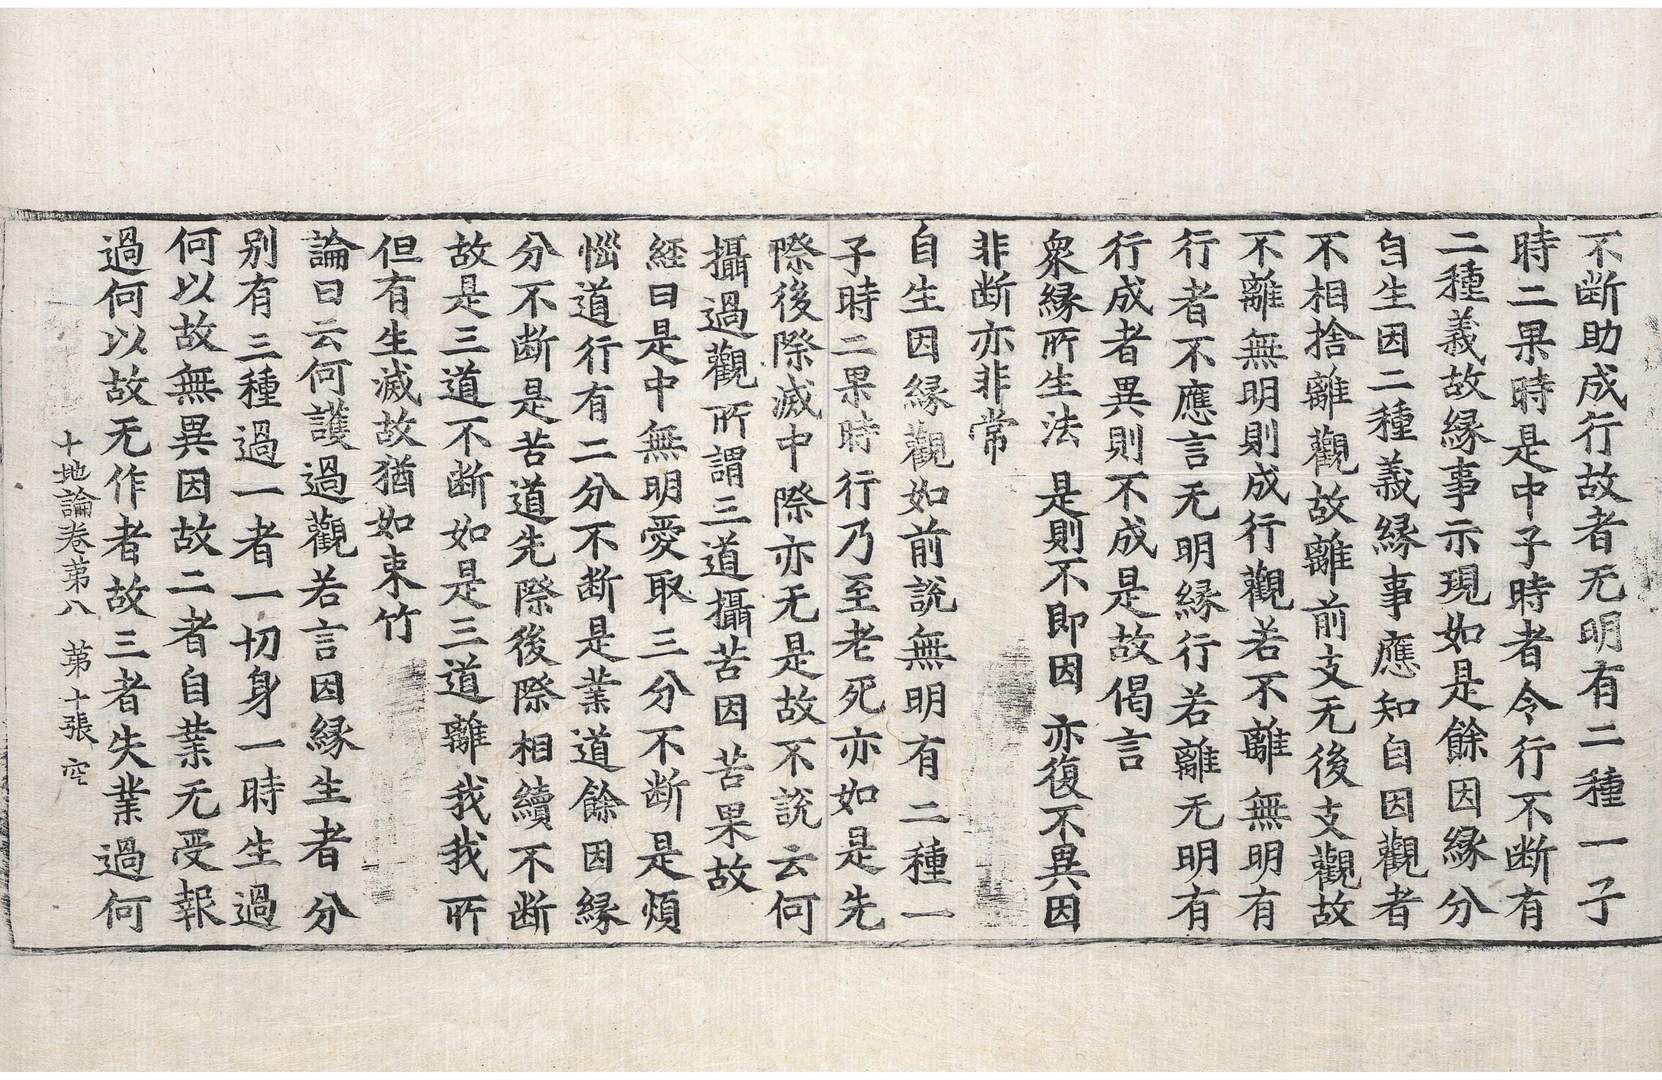 不断助成行故者无明有二種一子
時二果時是中子時者令行不断有
二種義故縁事示現如是餘因縁分
自生因二種義縁事應知自因觀者
不相捨離觀故離前支无後支觀故
不離無明則成行觀若不離無明有
行者不應言无明縁行若離无明有
行成者異則不成是故偈言
衆縁所生法 是則不即因 亦復不異因
非断亦非常
自生因縁觀如前說無明有二種一
子時二果時行乃至老死亦如是先
際後際滅中際亦无是故不說云何
攝過觀所謂三道攝苦因苦果故
經曰是中無明愛取三分不断是煩
惱道行有二分不断是業道餘因縁
分不断是苦道先際後際相續不断
故是三道不断如是三道離我我所
但有生滅故猶如束竹
論曰云何護過觀若言因縁生者分
別有三種過一者一切身一時生過
何以故無異因故二者自業无受報
過何以故无作者故三者失業過何
十地論卷第八 第十張 空